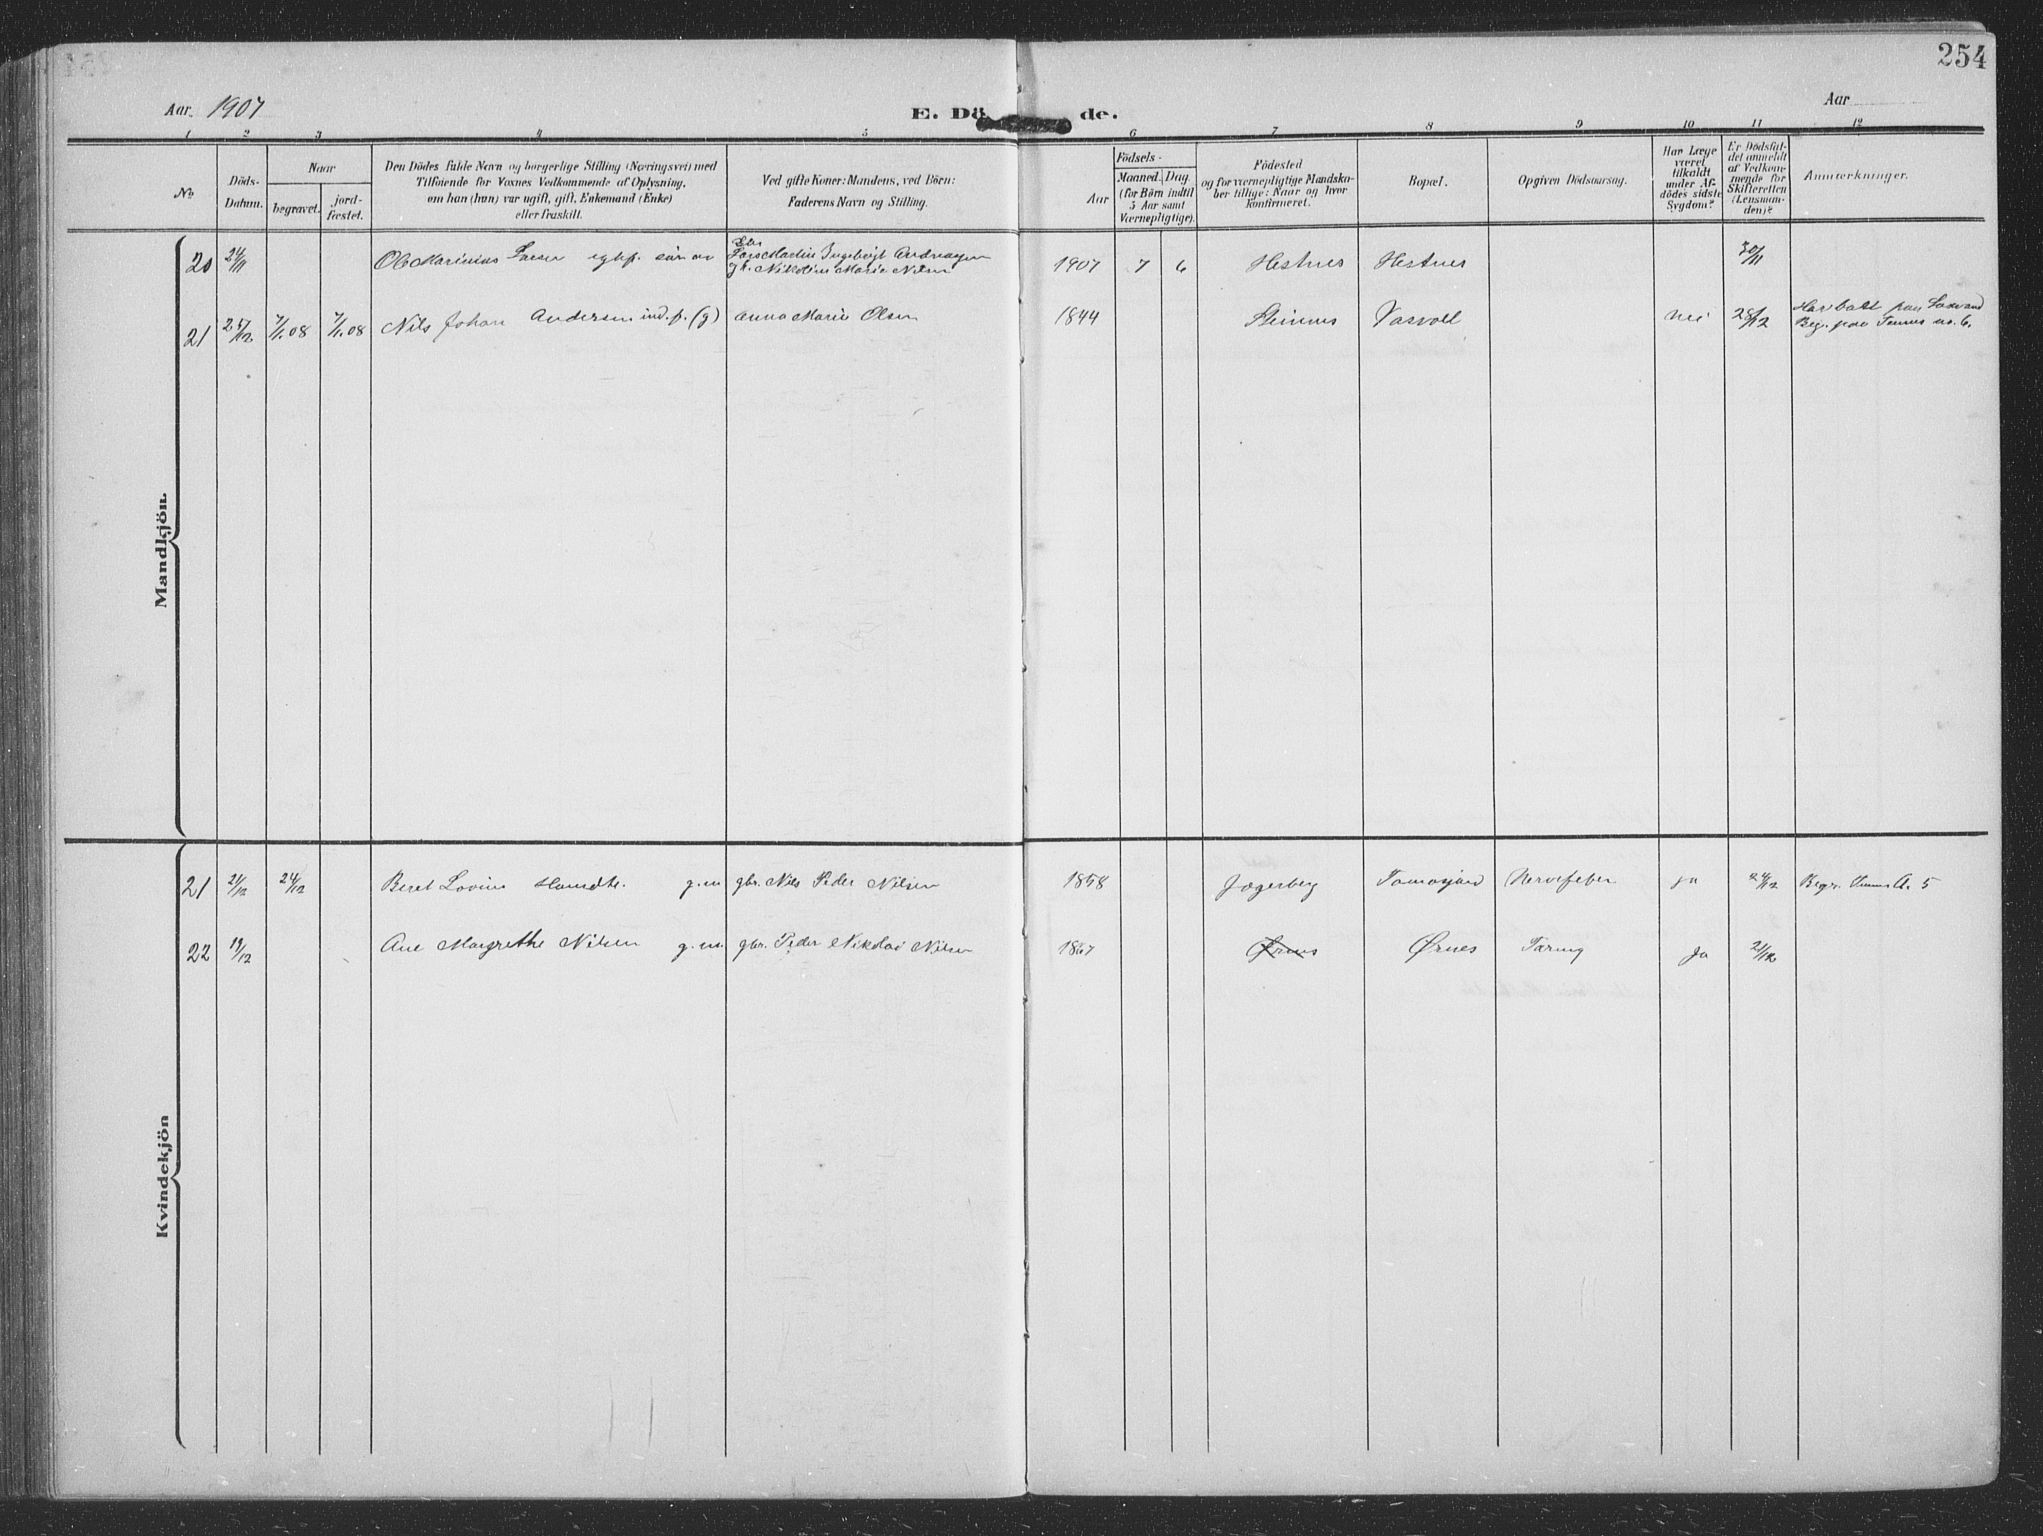 254
Aar 1907
E. Dö de.
Aar
1 2 3 4 5 6 7 8 9 10 11 12
No.
Döds-
Datum.
Naar
begravet.
jord-
fæstet.
Den Dödes fulde Navn og borgerlige Stilling (Næringsvei) med
Tilföiende for Voxnes Vedkommende af Oplysning,
om han (hun) var ugift, gift, Enkemand (Enke)
eller fraskilt.
Ved gifte Koner: Mandens, ved Börn:
Faderens Navn og Stilling.
Födsels-
Aar
Maaned. Dag.
(for Börn indtil
5 Aar samt
Værnepligtige).
Födested
og for værnepligtige Mandska-
ber tillige: Naar og hvor
konfirmeret.
Bopæl.
Opgiven Dödsaarsag.
Har Læge
været
tilkaldt
under Af-
dödes sidste
Sygdom?
Er Dödsfal-
det anmeldt
af Vedkom-
mende for
Skifteretten
(Lensman-
den)?
Anmærkninger.
Mandkjön.
20 24/11 Ole Marinius Larsen søn av Lars Martin Ingebrigt Andreassen 1907 7 6 Hestnes Hestnes 30/11
Nikoline Marie Nilsen
21 27/12 7/1.08 7/1.08 Nils Johan Andersen ind.p. (g) Anna Marie Olsen 1844 Steines Vasvoll nei 28/12
Beg. paa no. 6.
Kvindekjön
21 21/12 24/12 Beret Lovise g.m. gbr. Nils Peder Nilsen 1858 Jægerberg Nervefeber ja 24/12 Begr. A. 5
22 19/12 Ane Margrethe Nilsen g.m. gbr. Peder Nikolai Nilsen 1867 Ørnes Ørnes Tæring ja 21/12